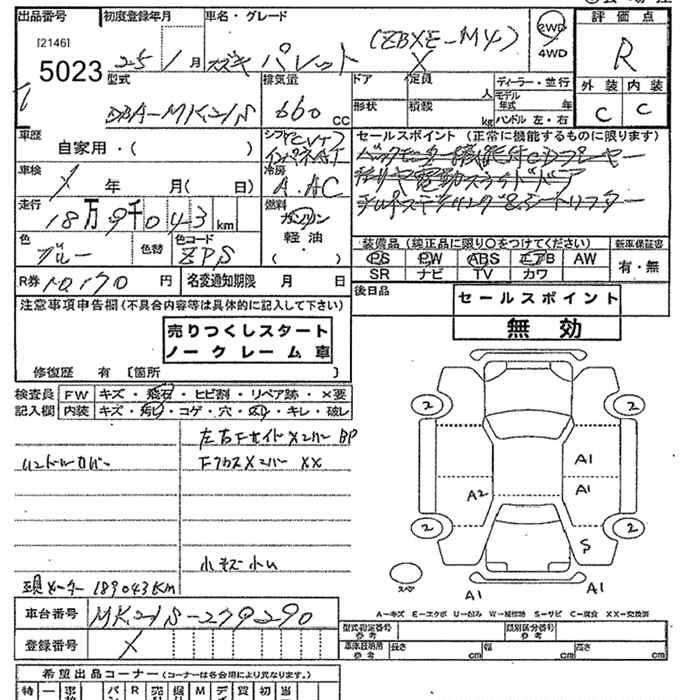 出品番号
初度登録年月
車名・グレード
評価点
[2146]
5023
25 / 1 月
スズキ パレット
(ZBXE-M4)
X
2WD
4WD
R
型式
排気量
ドア
定員
人
ディーラー・並行
モデル年式
年
外装
内装
DBA-MK21S
660 cc
形状
積載
kg
ハンドル 左・右
C
C
車歴
自家用・( )
シフト(CVT)
インパネAT
セールスポイント (正常に機能するものに限ります)
車検
X 年 月( 日)
冷房
A.AC
電動スライドドア
走行
18万9千043 km
燃料
ガソリン
軽油
色
ブルー
色替
色コード
ZPS
装備品 (純正品に限り〇をつけてください)
新車保証書
PS PW ABS エアB AW
SR ナビ TV カワ
有・無
R券 10,170 円
名変通知期限 月 日
後日品
セールスポイント
無効
注意事項申告欄 (不具合内容等は具体的に記入して下さい)
売りつくしスタート
ノークレーム車
修復歴 有 [箇所 ]
検査員
記入欄
FW キズ・飛石・ヒビ割・リペア跡・×要
内装 キズ・汚れ・コゲ・穴・スレ・キレ・破レ
左右Fサイドメンバー BP
ハンドルカバー
Fクロスメンバー XX
小キズ 小凹
現メーター 189043Km
2
2
A1
A1
A2
2
2
S
スペア
A1
A1
A-キズ E-エクボ U-凹み W-補修跡 S-サビ C-腐食 XX-交換済
車台番号 MK21S-279290
登録番号 X
型式指定番号
参考
類別区分番号
参考
車体証明用
参考
長さ cm
幅 cm
高さ cm
希望出品コーナー (コーナーは各会場により異なります。)